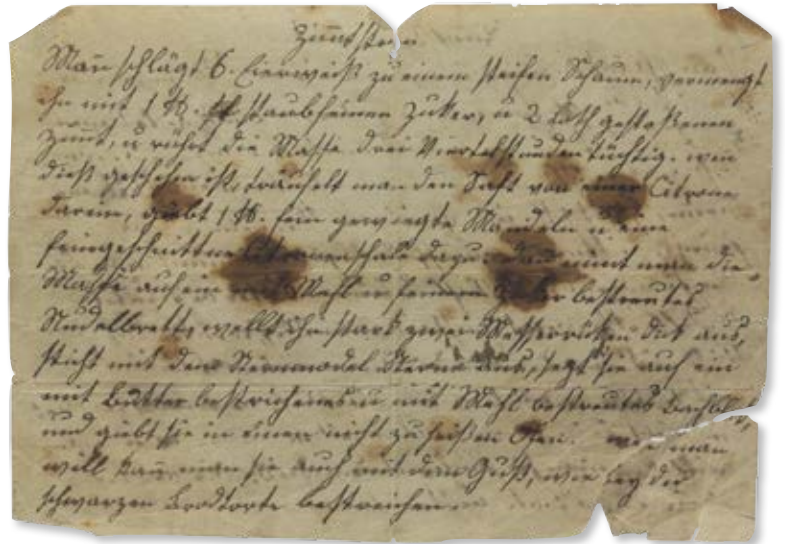 Zimmtstern
Man̄ schlägt 6. Eierweiß zu einem steifen Schaum, vermengt
ihn mit 1 ℔. staubfeinen Zuker, u 2 Loth gestoßenen
Zimt, u rührt die Masse drei Viertelstunden tüchtig. wen
dieß geschehen ist, träuchelt man den Saft von einer Citrone
darein, giebt 1 ℔. fein gewiegte Mandeln u eine
feingeschnittne Citronenschale dazu. dan nimt man die
Masse auf ein mit Mehl u feinem Zuker bestreutes
Nudelbrett, wellt sie stark zwei Messerrücken dik aus,
sticht mit dem Sternmodel Sterne aus, legt sie auf ein
mit Butter bestrichenes u mit Mehl bestreutes Backblech
und giebt sie in einen nicht zu heißen Ofen. wen man
will kan̄ man sie auch mit dem Guß, wie bey der
schwarzen Brodtorte bestreichen.